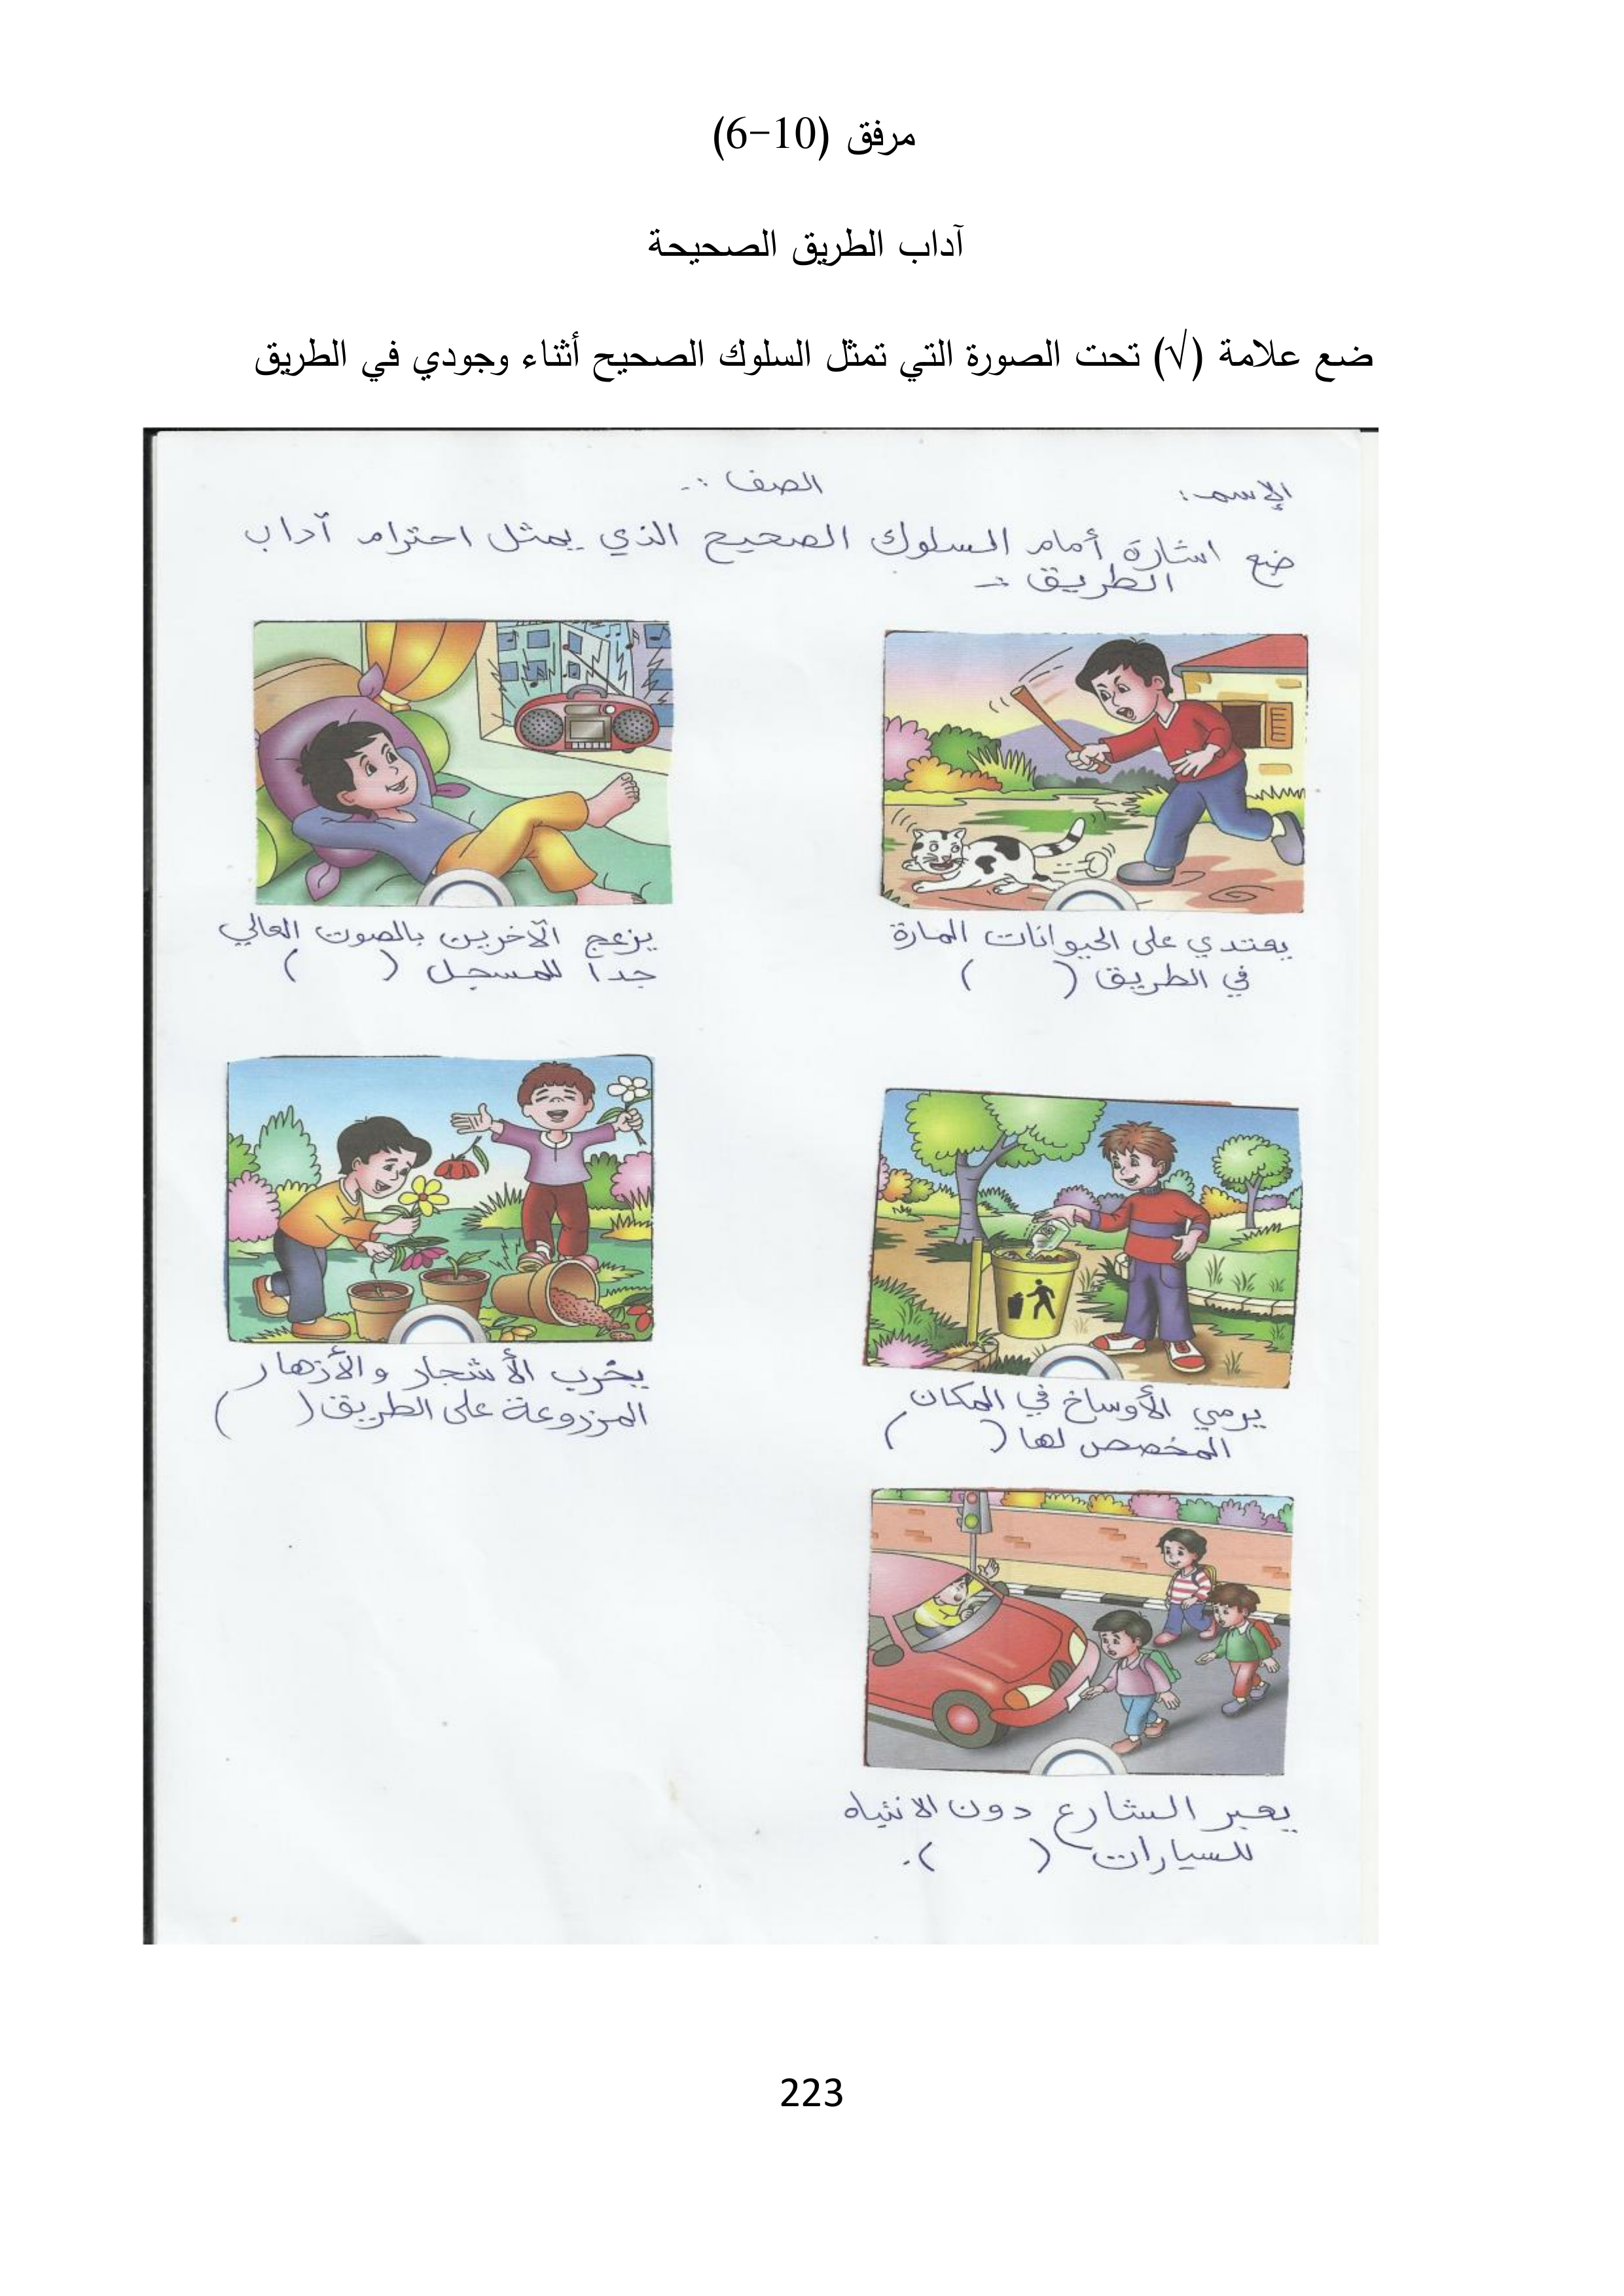 مرفق (10-6)
آداب الطريق الصحيحة
ضع علامة (√) تحت الصورة التي تمثل السلوك الصحيح أثناء وجودي في الطريق
الإسم: الصف :-
ضع اشارة أمام السلوك الصحيح الذي يمثل احترام آداب
الطريق :-
يعتدي على الحيوانات المارة
في الطريق ( )
يزعج الآخرين بالصوت العالي
جداً للمسجل ( )
يرمي الأوساخ في المكان
المخصص لها ( )
يخرب الأشجار والأزهار
المزروعة على الطريق ( )
يعبر الشارع دون الانتباه
للسيارات ( ).
223